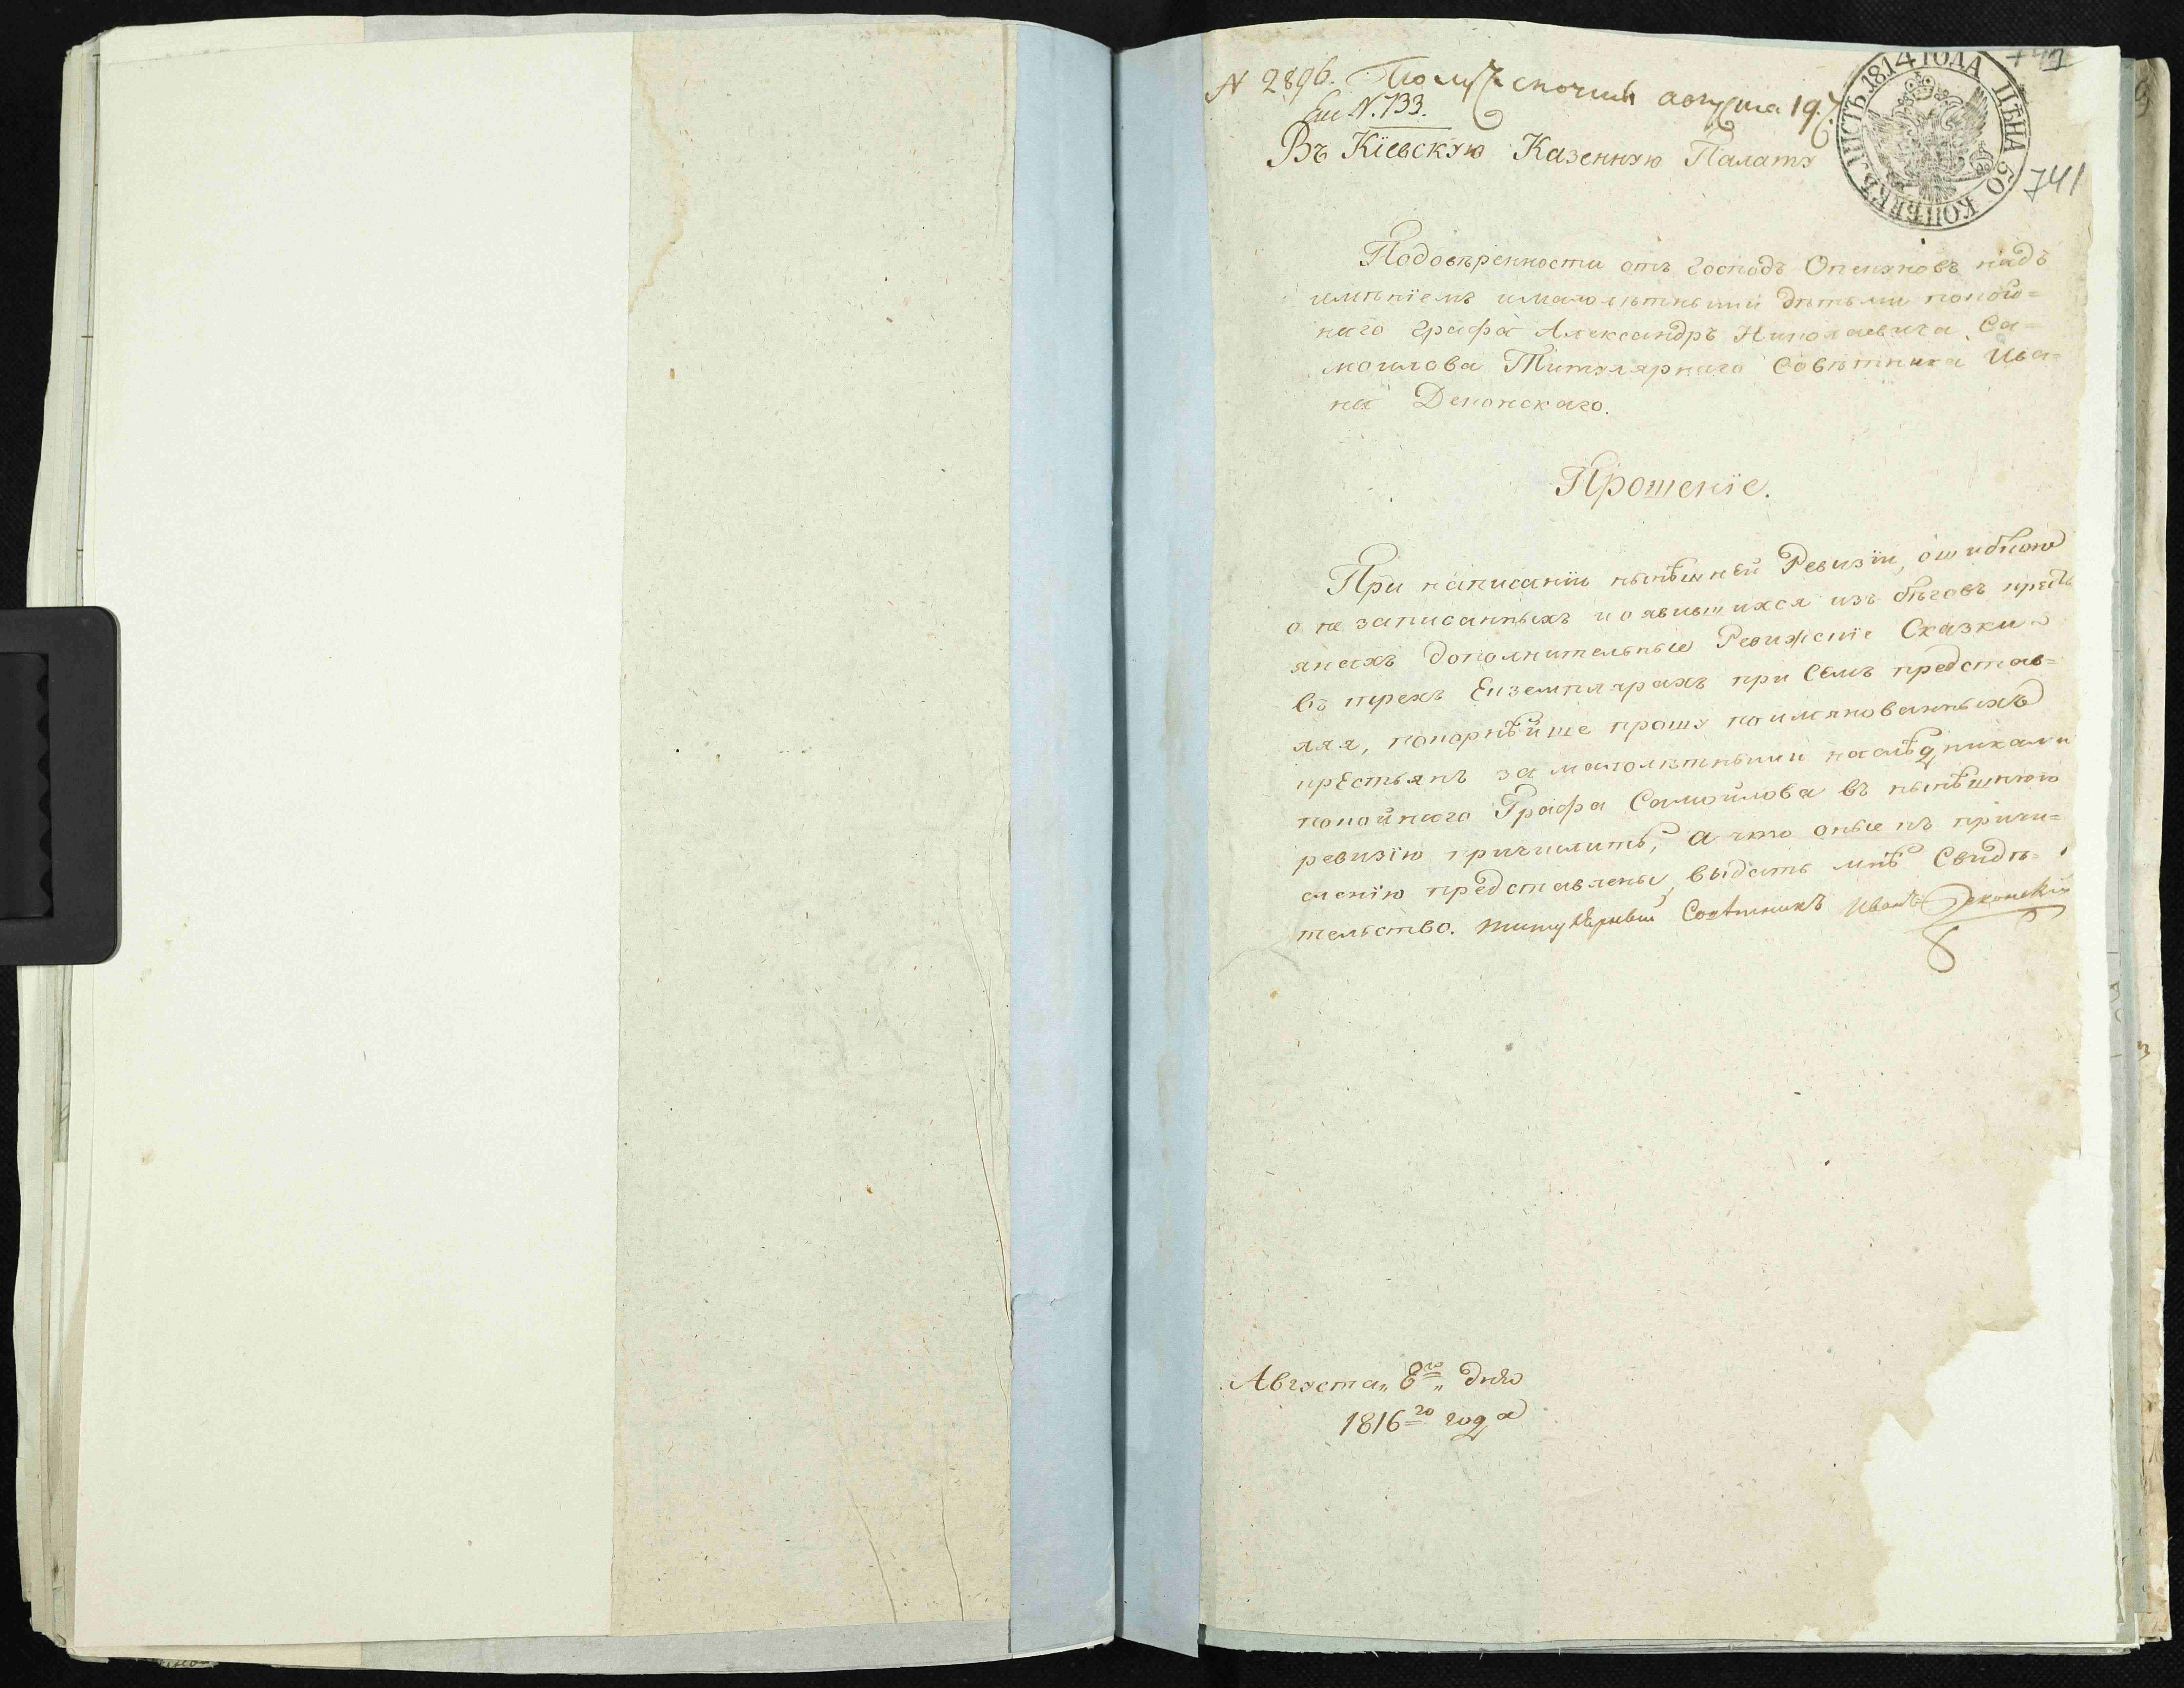 N 2896. Получ: августа 19.
N. 133.
Въ Кіевскую Казенную Палату
ЛИСТЪ 1814 ГОДА ЦѢНА 50 КОПѢЕКЪ
741
Подовѣренности отъ господъ Опекуновъ надъ
имѣніемъ ималолѣтными дѣтьми покой=
наго графа Александръ Николаевича Са=
мойлова Титулярнаго Совѣтника Ива=
на Деконскаго.
Прошеніе.
При написаніи нынѣшней Ревизіи, ошибкою
о не записанныхъ и оявившихся изъ бѣговъ крестъ
янахъ дополнительные Ревижскіе Сказки
въ трехъ Екземплярахъ при семъ представ=
ляя, покорнѣйше прошу поимянованныхъ
крестьянъ за малолѣтными наслѣдниками
покойнаго Графа Самойлова въ нынѣшнюю
ревизію причислить, а что оные къ причи=
сленію представлены, выдать мнѣ Свидѣ=
тельство. титулярный Советникъ Иванъ Деконскій
Августа„ 8го„ дня
1816го года